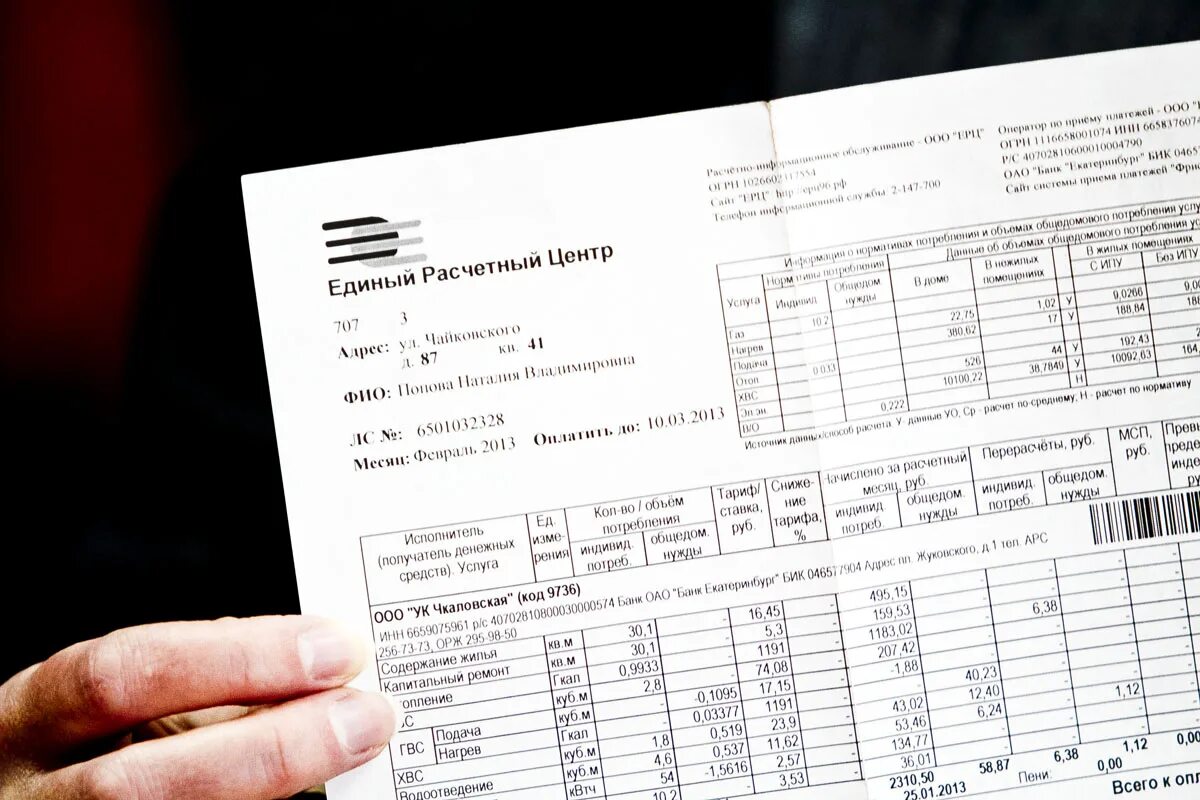 Единый Расчетный Центр
707 3
Адрес: ул. Чайковского
д. 87 кв. 41
ФИО: Попова Наталия Владимировна
ЛС №: 6501032328
Месяц: Февраль 2013 Оплатить до: 10.03.2013
Расчётно-информационное обслуживание - ООО "ЕРЦ"
ОГРН 1026602117554
Сайт "ЕРЦ" http://ерц96.рф
Телефон информационной службы 2-147-700
Оператор по приёму платежей - ООО
ОГРН 1116658001074 ИНН 6658376074
Р/С 40702810600010004790
ОАО "Банк "Екатеринбург" БИК 0465
Сайт системы приема платежей
Информация о нормативах потребления и объемах общедомового потребления
Данные об объемах общедомового потребления
Услуга
Нормативы потребления
Индивид
Общедом нужды
В доме
В нежилых помещениях
В жилых помещениях
С ИПУ
Без ИПУ
Газ 10.2
22,75 1,02 У 9,0266
Нагрев
380,62 17 У 188,84
Подача
Отоп 0.033
526 44 У 192,43
ХВС
10100,22 38,7849 У 10092,63
Эл.эн.
В/О 0,222 Н
Источник данных/способ расчета: У- данные УО, Ср - расчет по-среднему, Н - расчет по нормативу
Исполнитель (получатель денежных средств). Услуга
Ед. изме- рения
Кол-во / объём потребления
индивид. потреб.
общедом. нужды
Тариф/ ставка, руб.
Сниже- ние тарифа, %
Начислено за расчетный месяц, руб.
индивид потреб.
общедом. нужды
Перерасчёты, руб.
индивид. потреб.
общедом. нужды
МСП, руб.
ООО "УК Чкаловская" (код 9736)
ИНН 6659075961 р/с 40702810800030000574 Банк ОАО "Банк Екатеринбург" БИК 046577904 Адрес пл. Жуковского, д.1 тел. АРС
256-73-73, ОРЖ 295-98-50
Содержание жилья кв.м 30,1 - 16,45 - 495,15
Капитальный ремонт кв.м 30,1 - 5,3 - 159,53 - 6,38
опление Гкал 0,9933 - 1191 - 1183,02
С куб.м 2,8 - 74,08 - 207,42
ГВС Подача куб.м -0,1095 17,15 - -1,88
Нагрев Гкал 0,03377 1191 - 40,23
ХВС куб.м 1,8 0,519 23,9 - 43,02 12,40
Водоотведение куб.м 4,6 0,537 11,62 - 53,46 6,24 - 1,12
кВтч 54 -1,5616 2,57 - 134,77
10,2 3,53 - 36,01
2310,50 58,87 6,38 1,12 0,00
25.01.2013 Пени: 0,00
Всего к опл